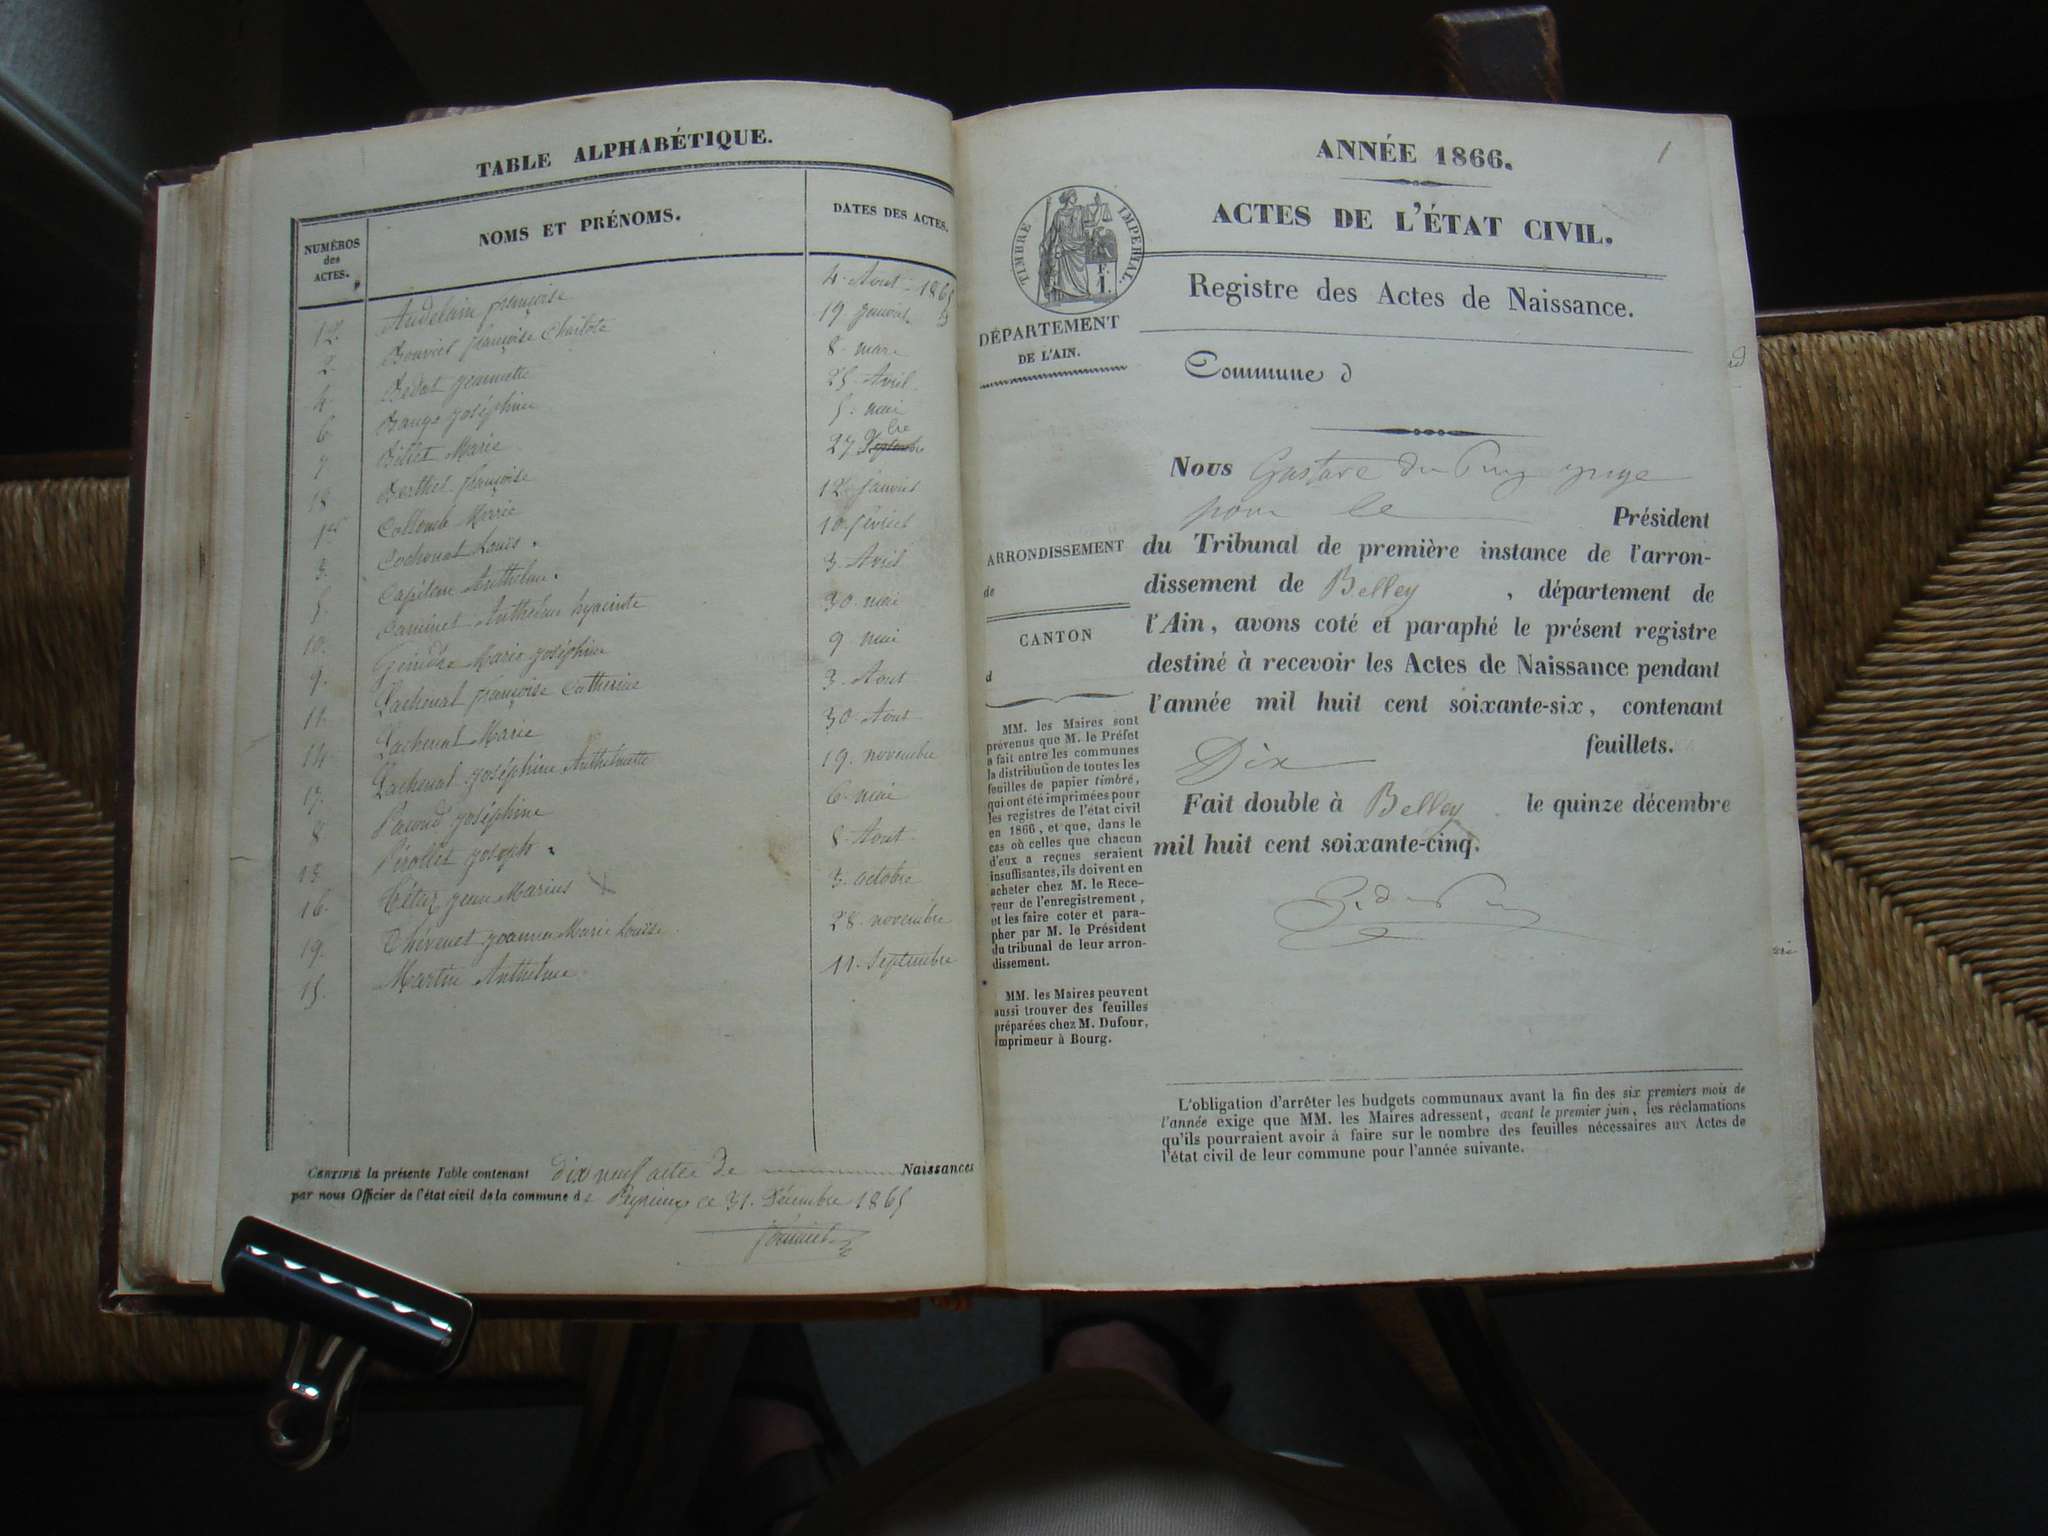 TABLE ALPHABÉTIQUE.
NUMÉROS
des
ACTES.
NOMS ET PRÉNOMS.
DATES DES ACTES.
12. Andelain françoise 4. Aout 1865
2. Bouvier françoise Charlote 19 janvier
4. Bedat jeannette 8. mars
6. Bauge joséphine 25. Avril
7. Marie 5. mai
18. Berthet françoise 27 9bre Septembre
1er Collomb Marie 12 janvier
3. Cochonat Louis. 10. février
5. Capitan Anthelme. 3. Avril
10. Caminet Anthelme hyacinte 30. mai
9. Marie joséphine 9 mai
11. Lachenal françoise Catherine 3. Aout
14. Lachenal Marie 30. Aout
17. Lachenal joséphine Anthelmette 19. novembre
8 Pacoud joséphine 6. mai
13. Pérollet joseph. 8. Aout
16. Tétaz jean Marius 3. octobre
19. Thévenet joanna Marie Louise. 28. novembre
15. Martin Anthelme 11. Septembre
CERTIFIÉ la présente Table contenant dix neuf actes de Naissances
par nous Officier de l'état civil de la commune de Peyrieux ce 31. Décembre 1865
1
ANNÉE 1866.
ACTES DE L'ÉTAT CIVIL.
TIMBRE IMPERIAL.
F.
1.
Registre des Actes de Naissance.
DÉPARTEMENT
DE L'AIN.
Commune d
Nous Gustave du Puy juge
pour le Président
du Tribunal de première instance de l'arron-
dissement de Belley, département de
l'Ain, avons coté et paraphé le présent registre
destiné à recevoir les Actes de Naissance pendant
l'année mil huit cent soixante-six, contenant
Dix feuillets.
Fait double à Belley le quinze décembre
mil huit cent soixante-cinq.
ARRONDISSEMENT
de
CANTON
d
MM. les Maires sont
prévenus que M. le Préfet
a fait entre les communes
la distribution de toutes les
feuilles de papier timbré,
qui ont été imprimées pour
les registres de l'état civil
en 1866, et que, dans le
cas où celles que chacun
d'eux a reçues seraient
insuffisantes, ils doivent en
acheter chez M. le Rece-
veur de l'enregistrement,
et les faire coter et para-
pher par M. le Président
du tribunal de leur arron-
dissement.
MM. les Maires peuvent
aussi trouver des feuilles
préparées chez M. Dufour,
imprimeur à Bourg.
L'obligation d'arrêter les budgets communaux avant la fin des six premiers mois de
l'année exige que MM. les Maires adressent, avant le premier juin, les réclamations
qu'ils pourraient avoir à faire sur le nombre des feuilles nécessaires aux Actes de
l'état civil de leur commune pour l'année suivante.